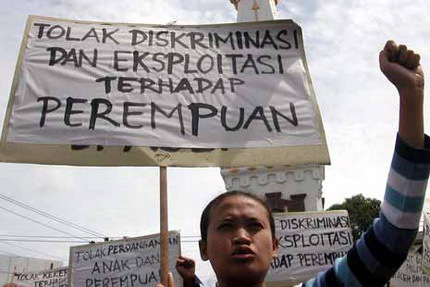 TOLAK DISKRIMINASI
DAN EKSPLOITASI
TERHADAP
PEREMPUAN
TOLAK PERDAGANGAN
ANAK DAN
PEREMPUAN
DISKRIMINASI
EKSPLOITASI
TERHADAP PEREMPUAN
TOLAK